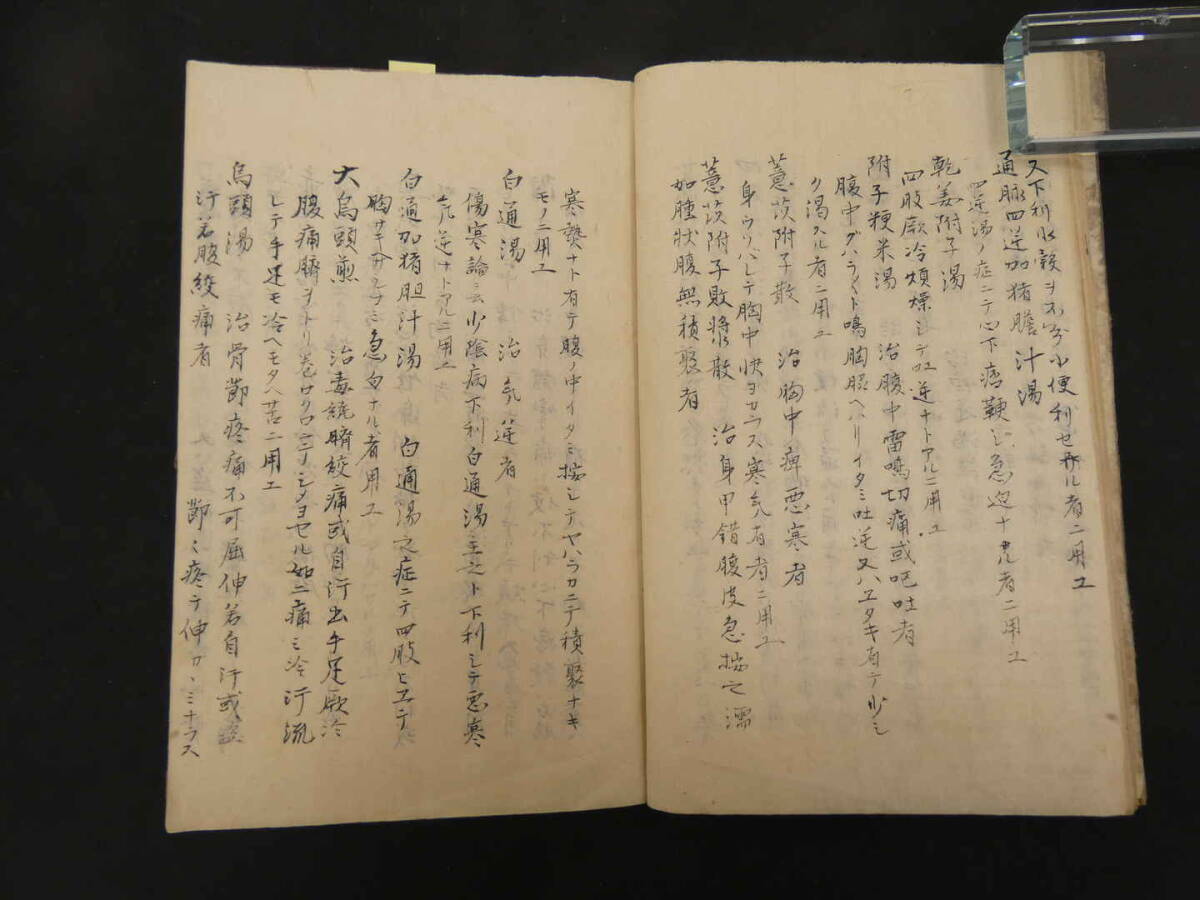 又下利水穀ヲス小便利セル者ニ用ユ
通脉四逆加猪膽汁湯
四逆湯ノ症ニテ心下痞鞕シ急迫ナル者ニ用ユ
乾姜附子湯
四肢厥冷煩燥シテ逆ナトアルニ用ユ
附子粳米湯　治腹中雷鳴切痛或吐者
腹中グハラ〱ト鳴胸膈ヘハリイタミ吐逆又ハユタキ有テ少シ
ク渇スル者ニ用ユ
薏苡附子散　治胸中痺悪寒者
身ウツハレテ胸中快ヨカラス寒気有者ニ用ユ
薏苡附子敗將散　治身甲錯腹皮急按之濡
如腫状腹無積聚者
寒ナト有テ腹ノ中イタミ按シテヤハラカニテ積聚ナキ
モノニ用ユ
白通湯　治気逆者
傷寒論ニ云少陰病下利白通湯主之ト下利シテ悪寒
気逆ナトアルニ用ユ
白通加猪胆汁湯　白通湯之症ニテ四肢ヒエテ
胸サキ急ナル者用ユ
大烏頭煎　治毒繞臍絞痛或自汗出手足厥冷
腹痛臍ヲトリ巻ロクロニテシメヨセル如ニ痛ミ冷汗流
レテ手足モ冷ヘモタヘ苦ニ用ユ
烏頭湯　治骨節疼痛不可屈伸若自汗或盗
汗若腹絞痛者　節〻疼テ伸カヽミナラス